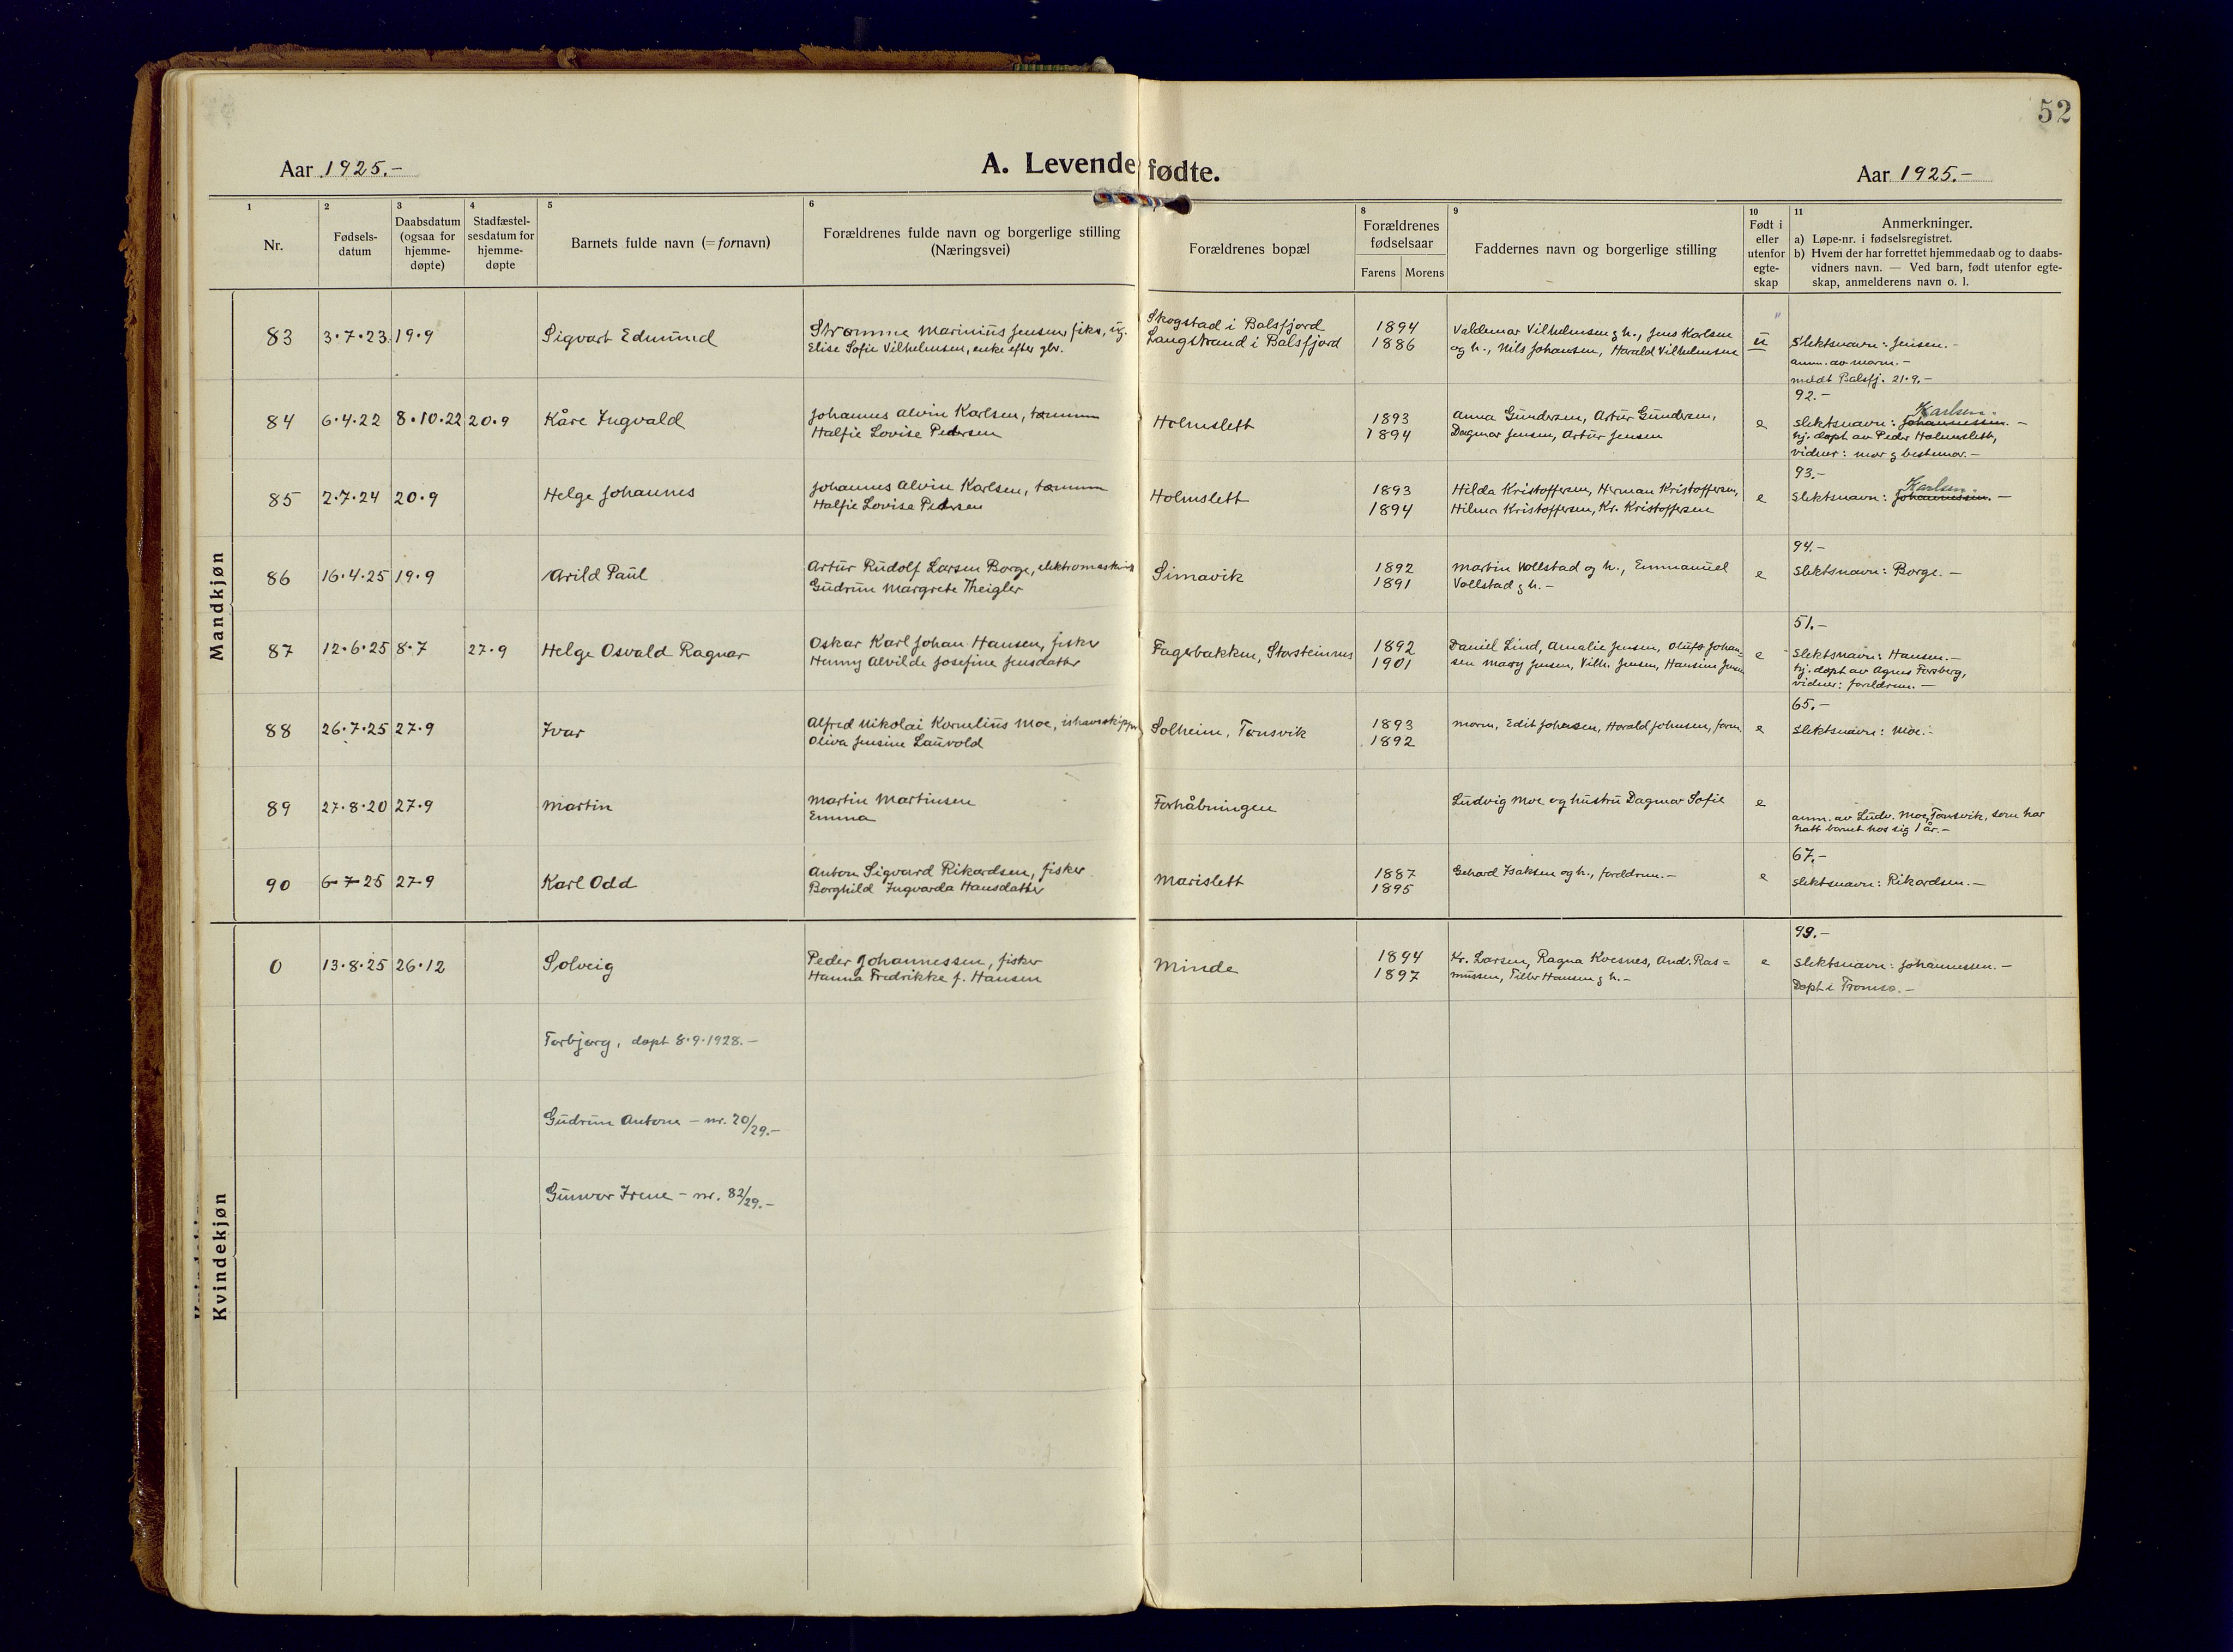 52
Aar 1925.-
A. Levendefødte.
Aar 1925.-
1
Nr.
2
Fødsels-
datum
3
Daabsdatum
(ogsaa for
hjemme-
døpte)
4
Stadfæstel-
sesdatum for
hjemme-
døpte
5
Barnets fulde navn (= fornavn)
6
Forældrenes fulde navn og borgerlige stilling
(Næringsvei)
Forældrenes bopæl
8
Forældrenes
fødselsaar
Farens Morens
9
Faddernes navn og borgerlige stilling
10
Født i
eller
utenfor
egte-
skap
11
Anmerkninger.
a) Løpe-nr. i fødselsregistret.
b) Hvem der har forrettet hjemmedaab og to daabs-
vidners navn. — Ved barn, født utenfor egte-
skap, anmelderens navn o. l.
Mandkjøn
83 3.7.23 19.9 Sigvart Edmund
Strømme Marinius Jensen, fisk, ug.
Elise Sofie Vilhelmsen, enke efter gbr.
Skogstad i Balsfjord
Langstrand i Balsfjord
1894
1886
Valdemar Vilhelmsen g h., Jens Karlsen
og h., Nils Johansen, Harald Vilhelmsen
u
"
Slektsnavn: Jensen.-
anm. av morm.-
meldt Balsfj. 21.9.-
84 6.4.22 8.10.22 20.9 Kåre Ingvald
Johannes Alvin Karlsen, tømm
Halfie Lovise Pedersen
Holmslett
1893
1894
Anna Gundersen, Artur Gundersen,
Dagmar Jensen, Artur Jensen
e
92.-
Karlsen.
Slektsnavn: Johannessen.-
hj. døpt av Peder Holmslett,
vidner: mor g bestemor.-
85 2.7.24 20.9 Helge Johannes
Johannes Alvin Karlsen, tømm
Halfie Lovise Pedersen
Holmslett
1893
1894
Hilda Kristoffersen, Herman Kristoffersen,
Hilma Kristoffersen, Kr. Kristoffersen
e
93.-
Karlsen.
Slektsnavn: Johannessen.-
86 16.4.25 19.9 Arild Paul
Artur Rudolf Larsen Borge, elektromaskinis
Gudrun Margrete Theigler
Simavik
1892
1891
Martin Vollstad og h., Emmanuel
Vollstad g h.-
e
94.-
Slektsnavn: Borge.-
87 12.6.25 8.7 27.9 Helge Osvald Ragnar
Oskar Karl Johan Hansen, fisker
Hanny Alvilde Josefine Jensdatter
Fagerbakken, Storsteinnes
1892
1901
Daniel Lind, Amalie Jensen, Oluf Johan-
sen Mary Jensen, Vilh. Jensen, Hansine Jensen
e
51.-
Slektsnavn: Hansen.-
hj. døpt av Agnes Forsberg,
vidner: foreldrene.-
88 26.7.25 27.9 Ivar
Alfred Nikolai Kornelius Moe, ishavsskipper
Oliva Jensine Lauvold
Solheim, Tønsvik
1893
1892
morm, Edit Johnsen, Harald Johnsen, farm.
e
65.-
Slektsnavn: Moe.-
89 27.8.20 27.9 Martin
Martin Martinsen
Emma
Forhåbningen
Ludvig Moe og hustru Dagmar Sofie
e
anm. av Ludv. Moe, Tønsvik, som har
hatt barnet hos sig 1 år.-
90 6-7-25 27-9 Karl Odd
Anton Sigvard Rikardsen, fisker
Borghild Ingvarda Hansdatter
Marislett
1887
1895
Gehard Isaksen og h., foreldrene.-
e
67.-
Slektsnavn: Rikardsen.-
Kvindekjøn
0 13.8.25 26.12 Solveig
Peder Johannessen, fisker
Hanna Fredrikke f. Hansen
Minde
1894
1897
Kr. Larsen, Ragna Kvesnes, And. Ras=
mussen, Tiller Hansen g h.-
e
99.-
Slektsnavn: Johannessen.-
Døpt i Tromsø.-
Torbjørg, døpt 8.9.1928.-
Gudrun Antone - nr. 20/29.-
Gunvor Irene - nr. 82/29.-